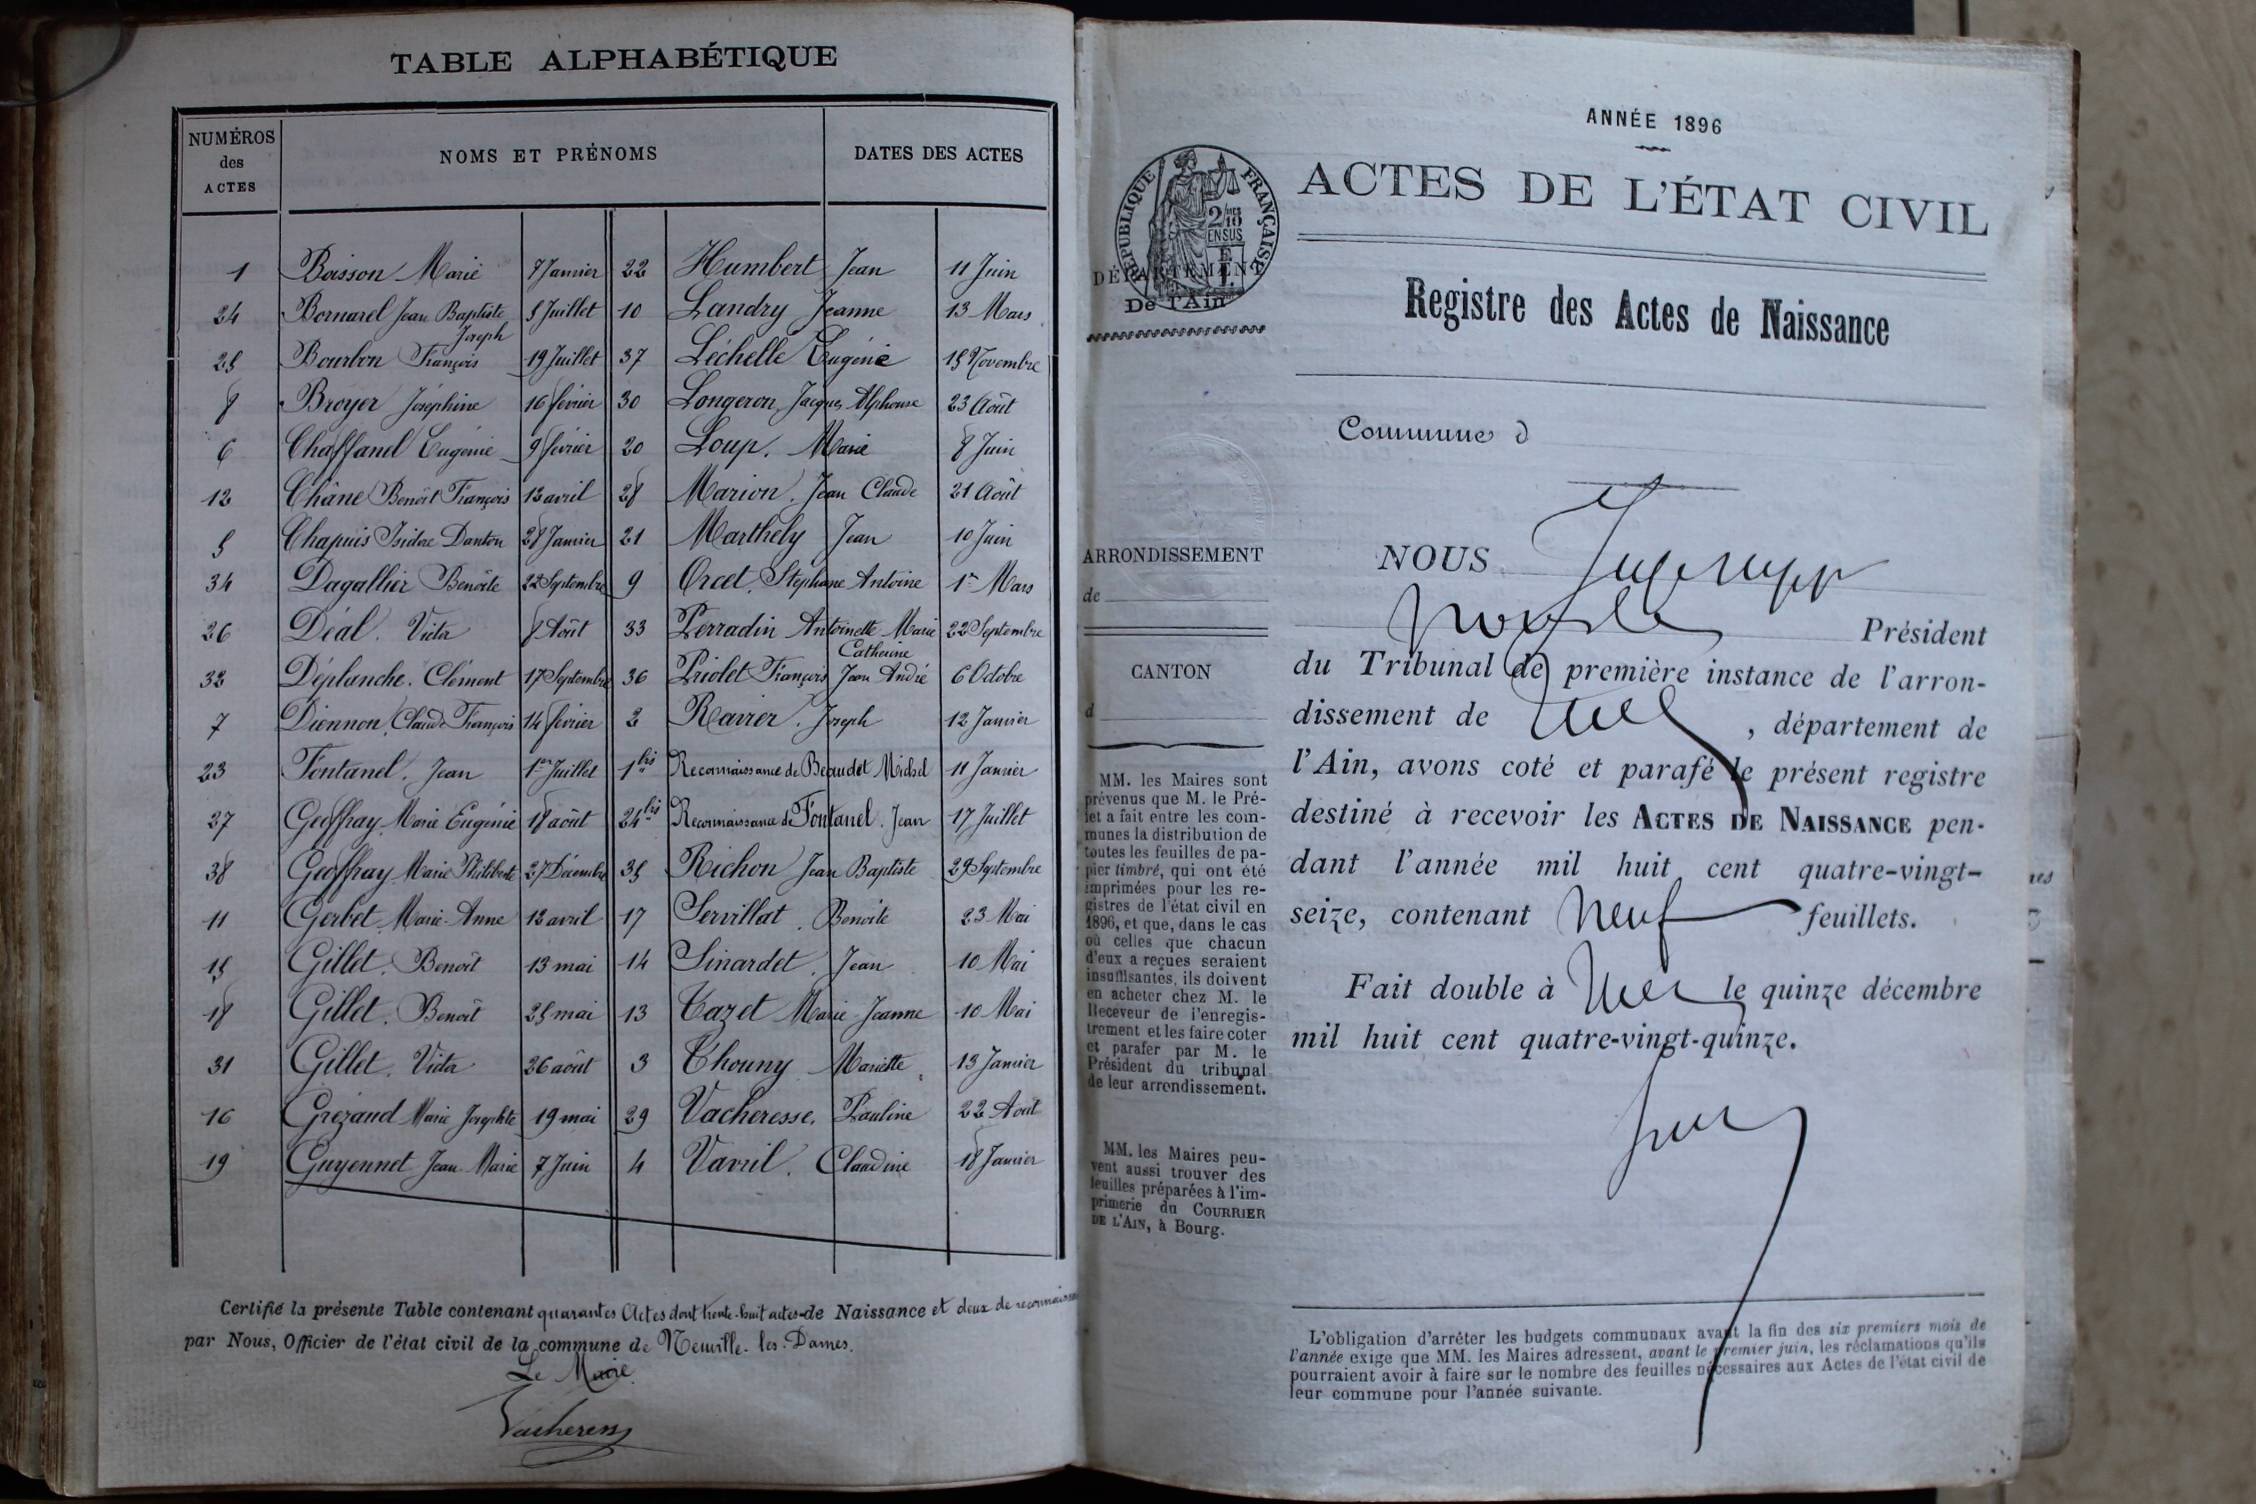 TABLE ALPHABÉTIQUE
NUMÉROS
des
ACTES
NOMS ET PRÉNOMS
DATES DES ACTES
1 Boisson Marie 7 Janvier 22 Humbert Jean 11 Juin
24 Bornarel Jean Baptiste 5 Juillet 10 Landry Jeanne 13 Mars
Joseph
25 Bourbon François 19 Juillet 37 Léchelle Eugénie 15 Novembre
8 Broyer Joséphine 16 février 30 Longeron Jacques Alphonse 23 Août
6 Chaffanel Eugénie 9 février 20 Loup. Marie 8 Juin
12 Châne Benoît François 12 avril 28 Marion. Jean Claude 21 Août
5 Chapuis Isidore Danton 28 Janvier 21 Marthely Jean 10 Juin
34 Dagallier Benoîte 22 Septembre 9 Orcet. Stephane Antoine 1er Mars
26 Déal. Victor 8 Août 33 Perradin Antoinette Marie 22 Septembre
Catherine
32 Déplanche. Clément 17 Septembre 36 Priolet François Jean André 6 Octobre
7 Diennon Claude François 14 février 2 Ravier. Joseph 12 Janvier
23 Fontanel. Jean 1er Juillet 1bis Reconnaissance de Beaudet Michel 11 Janvier
27 Geoffray Marie Eugénie 18 août 24bis Reconnaissance de Fontanel. Jean 17 Juillet
38 Geoffray Marie Philiberte 27 Décembre 35 Richon Jean Baptiste 29 Septembre
11 Gerbet Marie-Anne 12 avril 17 Servillat. Benoîte 23 Mai
15 Gillet. Benoît 13 mai 14 Sinardet. Jean 10 Mai
18 Gillet. Benoît 25 mai 13 Tazet Marie Jeanne 10 Mai
31 Gillet. Victor 26 août 3 Thouny Mariette 13 Janvier
16 Grézaud Marie Josephte 19 mai 29 Vacheresse. Pauline 22 Août
19 Guyennet Jean Marie 7 Juin 4 Vavril. Claudine 18 Janvier
Certifié la présente Table contenant quarantes Actes dont trente-huit actes de Naissance et deux de reconnaissance
par Nous, Officier de l'état civil de la commune de Neuville-les-Dames.
Le Maire
Vacheress
ANNÉE 1896
ACTES DE L'ÉTAT CIVIL
RÉPUBLIQUE FRANÇAISE
2/10 EN SUS
DÉPARTEMENT
De l'Ain
Registre des Actes de Naissance
Commune d
ARRONDISSEMENT
de
CANTON
d
MM. les Maires sont
prévenus que M. le Pré-
fet a fait entre les com-
munes la distribution de
toutes les feuilles de pa-
pier timbré, qui ont été
imprimées pour les re-
gistres de l'état civil en
1896, et que, dans le cas
où celles que chacun
d'eux a reçues seraient
insuffisantes, ils doivent
en acheter chez M. le
Receveur de l'enregis-
trement et les faire coter
et parafer par M. le
Président du tribunal
de leur arrondissement.
MM. les Maires peu-
vent aussi trouver des
feuilles préparées à l'im-
primerie du COURRIER
DE L'AIN, à Bourg.
NOUS
Président
du Tribunal de première instance de l'arron-
dissement de , département de
l'Ain, avons coté et parafé le présent registre
destiné à recevoir les ACTES DE NAISSANCE pen-
dant l'année mil huit cent quatre-vingt-
seize, contenant neuf feuillets.
Fait double à le quinze décembre
mil huit cent quatre-vingt-quinze.
L'obligation d'arrêter les budgets communaux avant la fin des six premiers mois de
l'année exige que MM. les Maires adressent, avant le premier juin, les réclamations qu'ils
pourraient avoir à faire sur le nombre des feuilles nécessaires aux Actes de l'état civil de
leur commune pour l'année suivante.